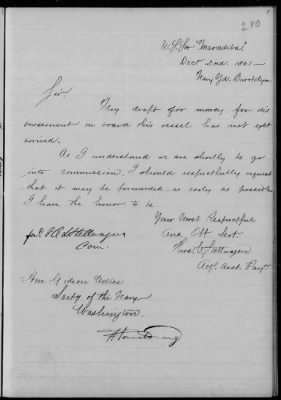 280
U.S. Str "Mercedita"
Decr 2nd. 1861 -
Navy Yd. Brooklyn
Sir
My draft for money, for dis
bursement on board this vessel has not yet
arrived.
As I understand we are shortly to go
into commission, I should respectfully request
that it may be forwarded, as early as possible
I have the honor to be
Your Most Respectful
And Obt Servt
Actg. Asst. Paymr
Com.
Hon. Gideon Welles
Secty of the Navy
Washington.